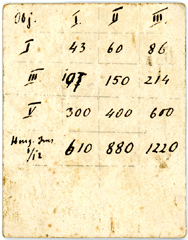 Obj. I. II III
I 43 60 86
III 107 150 214
V 300 400 600
Hom. Imm. 1/12 610 880 1220